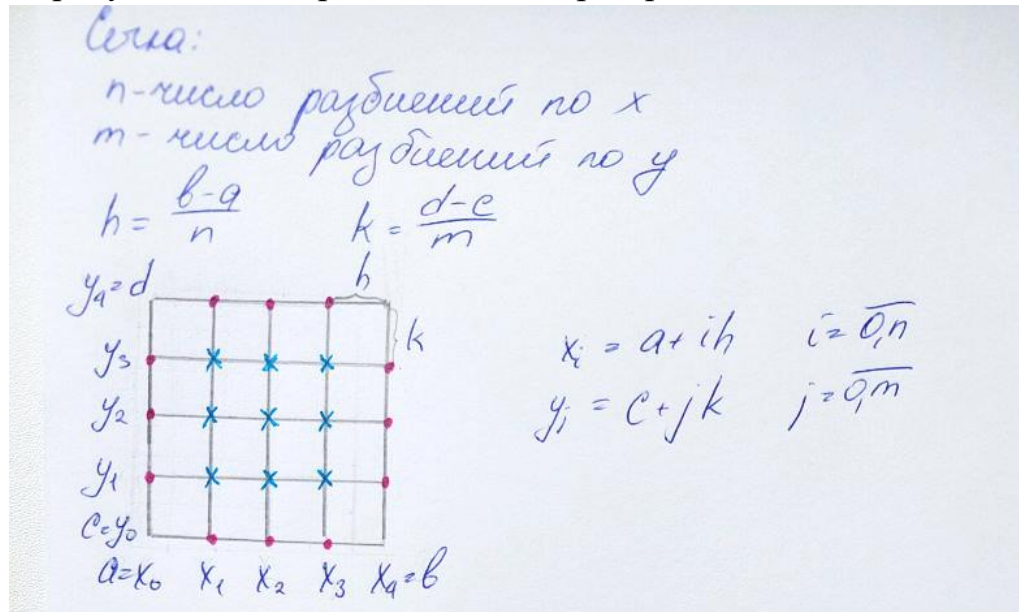 Сетка:
n-число разбиений по x
m-число разбиений по y
h = (b-a)/n    k = (d-c)/m
y₄=d
h
k
y₃
y₂
y₁
c=y₀
a=x₀ x₁ x₂ x₃ x₄=b
xᵢ = a+ih    i=0,n
yⱼ = c+jk    j=0,m